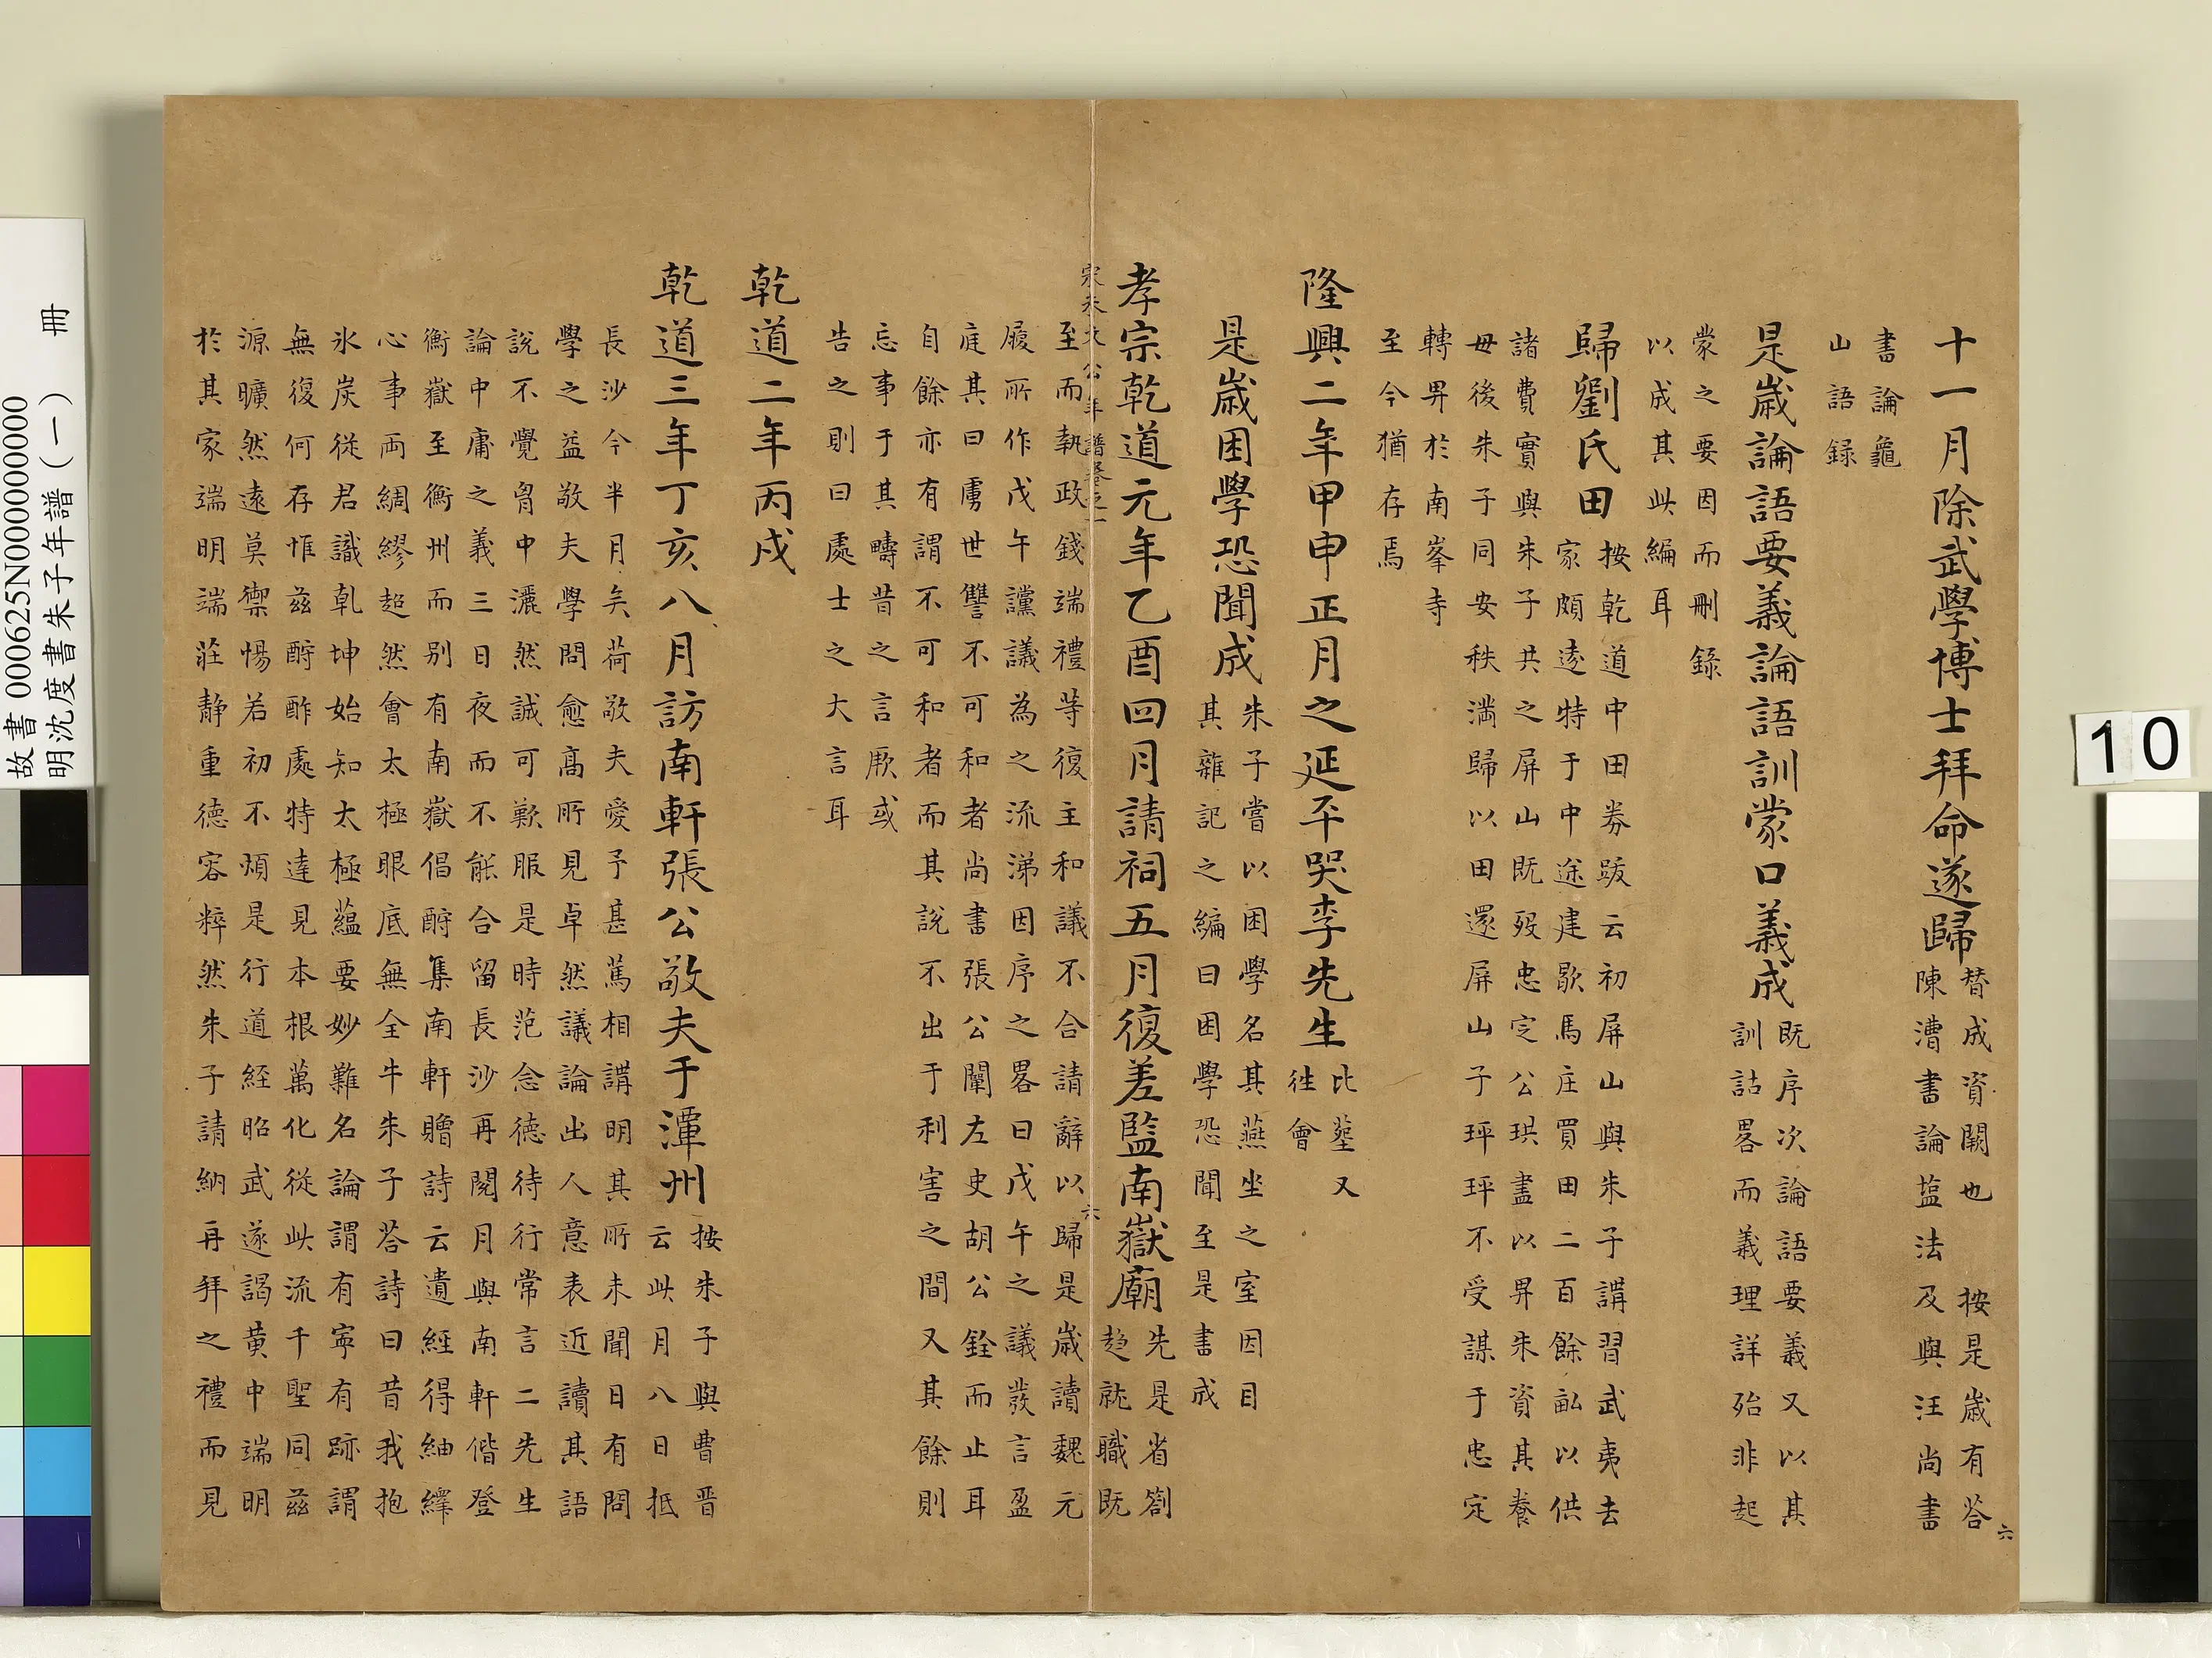 十一月除武學博士拜命遂歸
替成資闕也 按是歲有荅
陳漕書論塩法及與汪尚書
書論龜
山語録
是歲論語要義論語訓蒙口義成
既序次論語要義又以其
訓詁畧而義理詳殆非起
蒙之要因而刪錄
以成其此編耳
歸劉氏田
按乾道中田券跋云初屏山與朱子講習武夷去
家頗遠特于中途建歇馬庄買田二百餘畝以供
諸費實與朱子共之屏山既歿忠定公珙盡以畀朱資其養
毋後朱子同安秩滿歸以田還屏山子玶玶不受謀于忠定
轉畀於南峯寺
至今猶存焉
隆興二年甲申正月之延平哭李先生
比塟又
徃會
是歲困學恐聞成
朱子嘗以困學名其燕坐之室因目
其雜記之編曰困學恐聞至是書成
孝宗乾道元年乙酉四月請祠五月復差監南嶽廟
先是省劄
趋就職既
六
宋朱文公年譜卷之一 六
至而執政錢端禮等復主和議不合請辭以歸是歲讀魏元
履所作戊午讜議為之流涕因序之畧曰戊午之議發言盈
庭其曰虜世讐不可和者尚書張公闡左史胡公銓而止耳
自餘亦有謂不可和者而其說不出于利害之間又其餘則
忘事于其疇昔之言厥或
告之則曰處士之大言耳
乾道二年丙戌
乾道三年丁亥八月訪南軒張公敬夫于潭州
按朱子與曹晋
云此月八日抵
長沙今半月矣荷敬夫愛予甚篤相講明其所未聞日有問
學之益敬夫學問愈高所見卓然議論出人意表近讀其語
說不覺胷中灑然誠可歎服是時范念德待行常言二先生
論中庸之義三日夜而不能合留長沙再閱月與南軒偕登
衡嶽至衡州而別有南嶽倡酬集南軒贈詩云遺經得紬繹
心事両綢繆超然會太極眼底無全牛朱子荅詩曰昔我抱
氷炭從君識乹坤始知太極蘊要妙難名論謂有寧有跡謂
無復何存惟茲酧酢處特達見本根萬化從此流千聖同茲
源曠然遠莫禦惕若初不煩是行道経昭武遂謁黄中端明
於其家端明端莊靜重德容粹然朱子請納再拜之禮而見
故書 000625N000000000
明沈度書朱子年譜（一） 冊
10